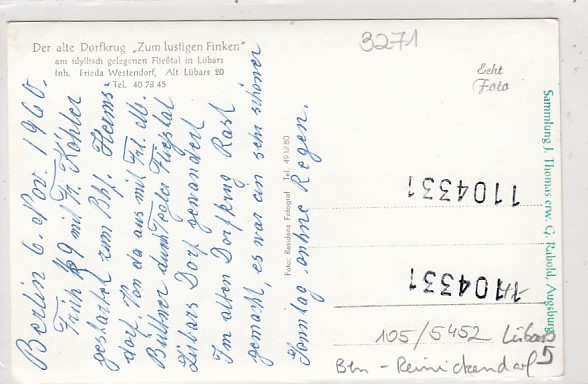 Der alte Dorfkrug „Zum lustigen Finken"
am idyllisch gelegenen Fließtal in Lübars
Inh. Frieda Westendorf, Alt Lübars 20
Tel. 40 78 45
Berlin 6. Nov. 1960.
Früh 9 mit Fr. Köhler
gestartet zum Bhf. Herms-
dorf. Von da aus mit Frl. M.
Büttner durch Tegler Fliestal
Lübars Dorf gewandert
Im alten Dorfkrug Rast
gemacht, es war ein sehr schöner
Sonntag ohne Regen.
Foto: Residenz Fotograf Tel. 49 12 80
3271
Echt
Foto
1104331
1104331
105/5452 Lübars
5
Bln - Reinickendorf
Sammlung J. Thomas erw. G. Rabold, Augsburg